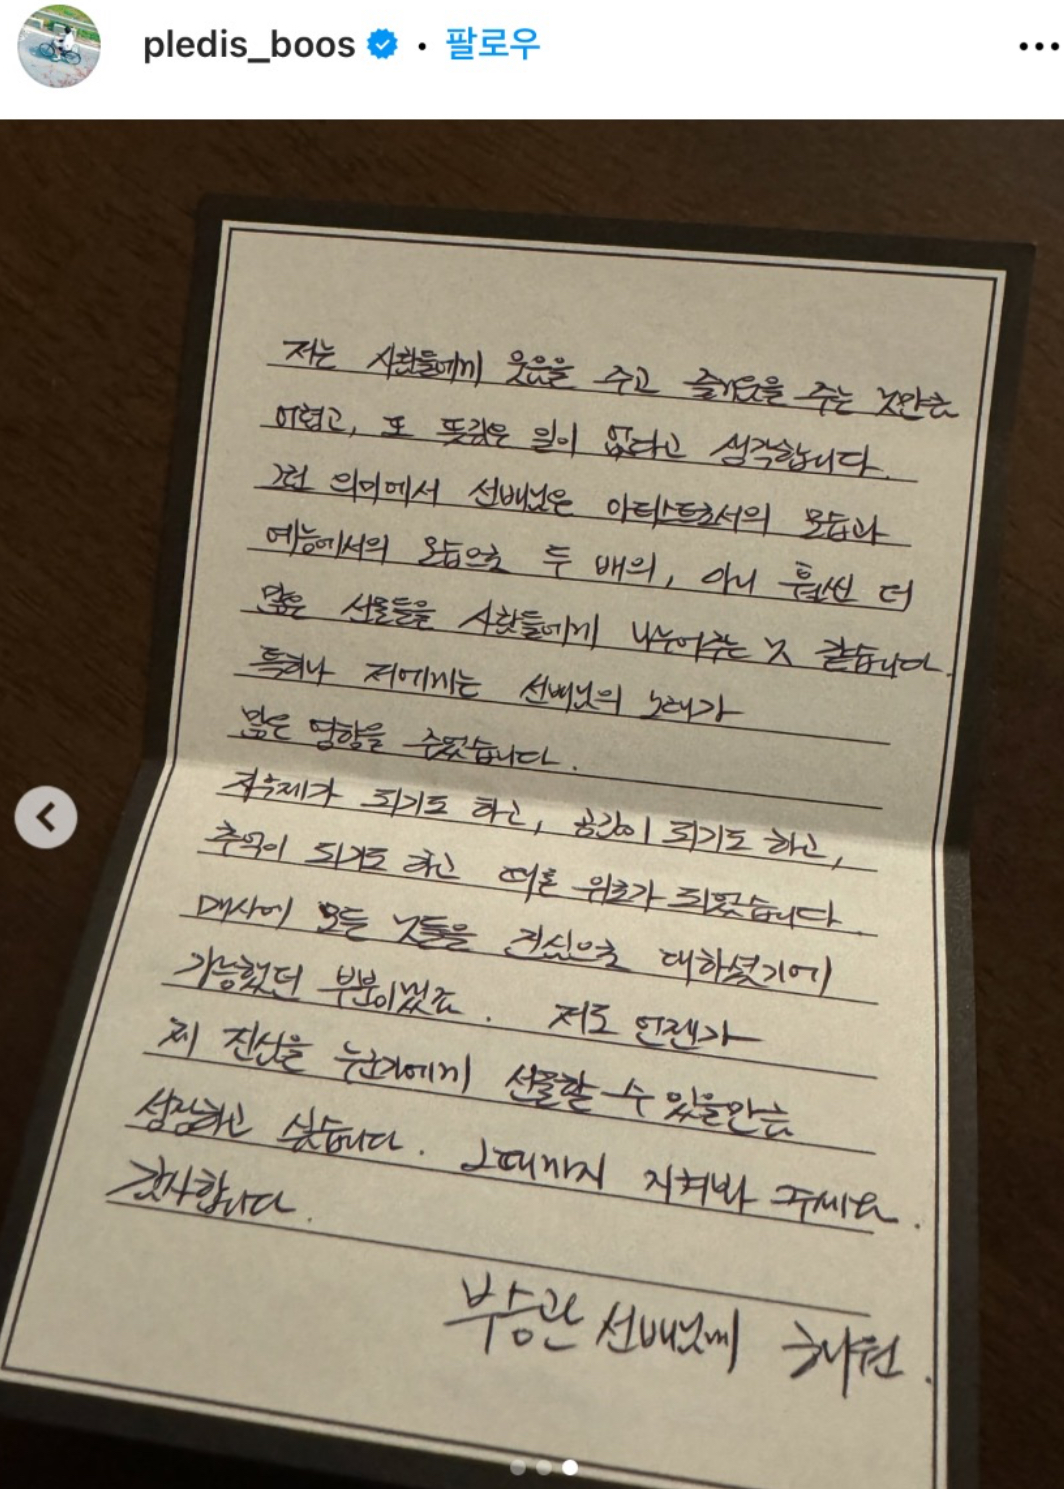 pledis_boos • 팔로우
저는 사람들에게 웃음을 주고 즐거움을 주는 것만큼
어렵고, 또 뜻깊은 일이 없다고 생각합니다.
그런 의미에서 선배님은 아티스트로서의 모습과
예능에서의 모습으로 두 배의, 아니 훨씬 더
많은 선물들을 사람들에게 나누어주는 것 같습니다.
특히나 저에게는 선배님의 노래가
많은 영향을 주었습니다.
자극제가 되기도 하고, 공감이 되기도 하고,
추억이 되기도 하고 때론 위로가 되었습니다.
매사에 모든 것들을 진심으로 대하셨기에
가능했던 부분이겠죠. 저도 언젠가
제 진심을 누군가에게 선물할 수 있을만큼
성장하고 싶습니다. 그때까지 지켜봐 주세요.
감사합니다.
부승관 선배님께